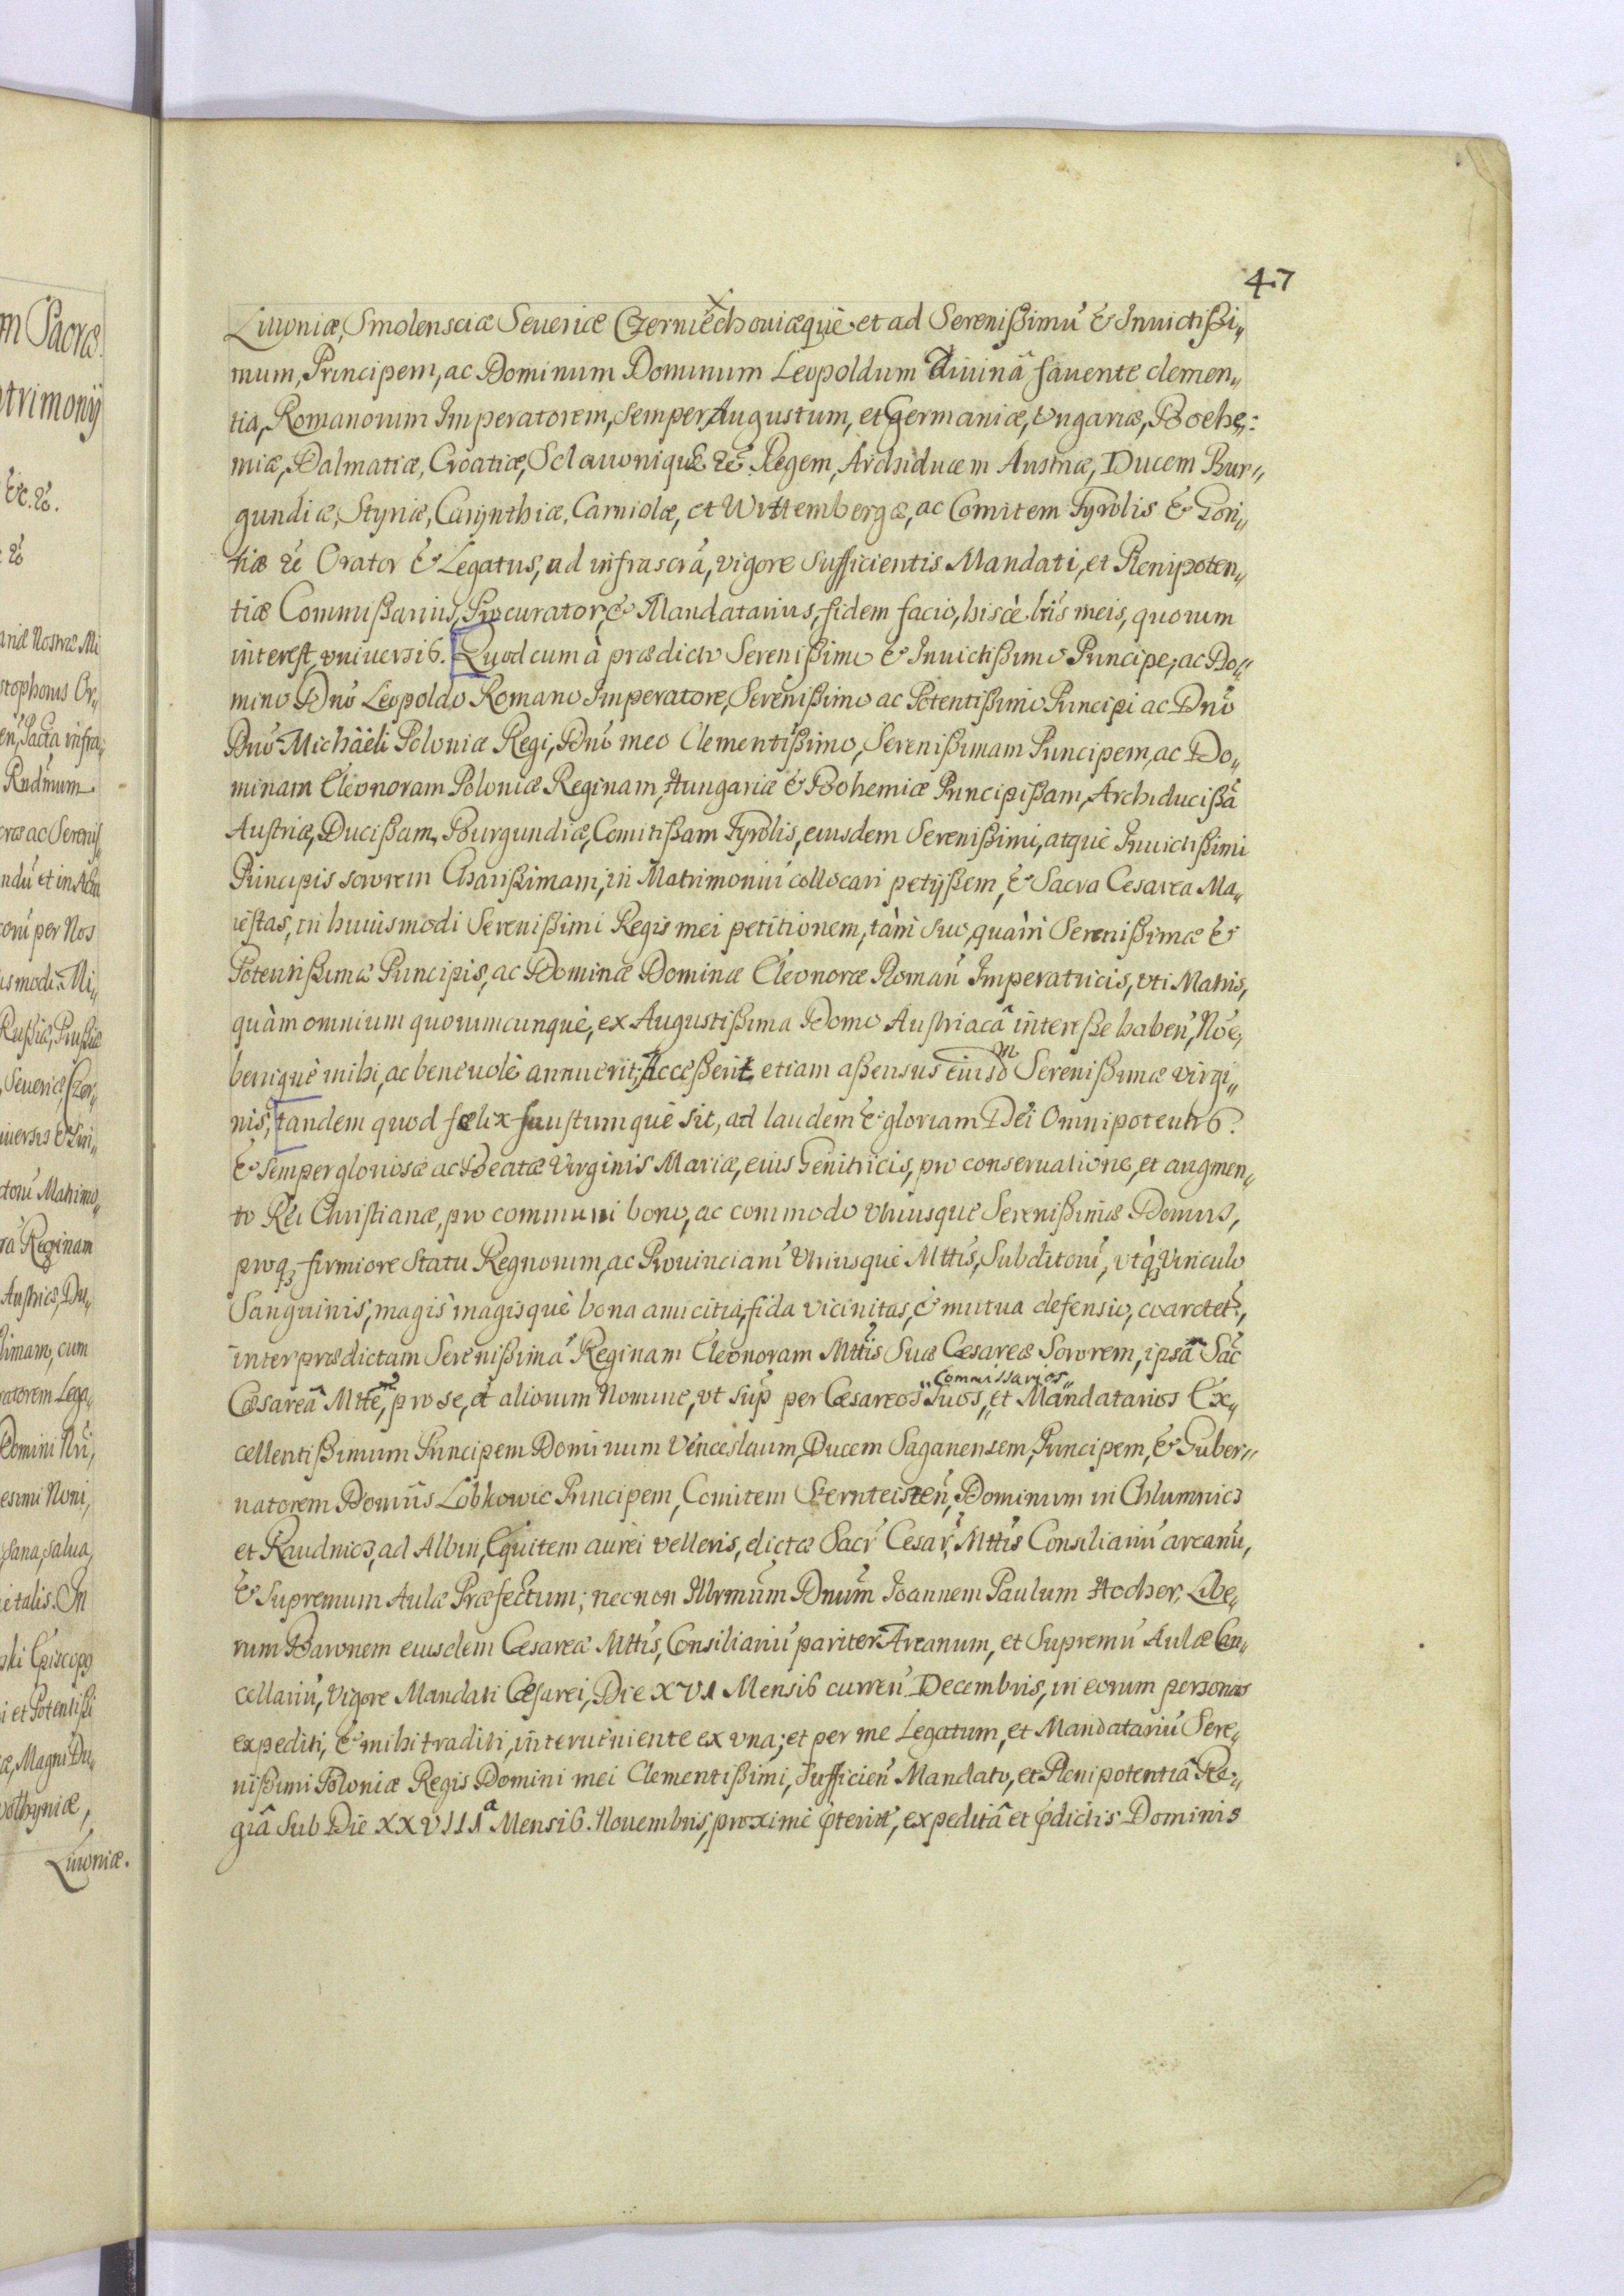 47
Liuoniæ, Smolensciæ Seueriæ Czerniechouiæquè et ad Serenißimũ & Inuictißi„
mum, Principem, ac Dominum Dominum Leopoldum diuinâ fauente clemen„
tia, Romanorum Imperatorem, semper Augustum, et Germaniæ, Ungariæ, Boehe„:
miæ, Dalmatiæ, Croatiæ, Sclauoniquè &c̃ Regem, Archiducem Austriæ, Ducem Bur„
gundiæ, Styriæ, Carynthiæ, Carniolæ, et Wittembergæ, ac Comitem Tyrolis & Gori„
tiæ &c̃ Orator & Legatus, ad infrascrã, vigore Sufficientis Mandati, et Plenipoten„
tiæ Commißarius, Procurator, & Mandatarius, fidem facio, hiscè lr̃is meis, quorum
interest, vniuersis. Quod cum à prædicto Serenißimo & Inuictißimo Principe, ac Do„
mino Dnõ Leopoldo Romano Imperatore, Serenißimo ac Potentißimo Principi ac Dnõ
Dnõ Michäeli Poloniæ Regi, Dnõ meo Clementißimo, Serenißimam Principem, ac Do„
minam Eleonoram Poloniæ Reginam, Hungariæ & Bohemiæ Principißam, Archiducißã
Austriæ, Ducißam, Burgundiæ, Comitißam Tyrolis, eiusdem Serenißimi, atquè Inuictißimi
Principis sororem Charißimam, in Matrimoniũ collocari petijßem, & Sacra Cesarea Ma„
iestas, in huiusmodi Serenißimi Regis mei petitionem, tàm suo, quàm Serenißimæ &
Potentißimæ Principis, ac Dominæ Dominæ Eleonoræ Romañ Imperatricis, vti Matris,
quàm omnium quorumcunquè, ex Augustißima Domo Austriacâ intereße habeñ, Nõe,
beniquè mihi, ac beneuolè annuerit; Acceßerit etiam aßensus eiusdm Serenißimæ virgi„
nis, tandem quod fælix faustumquè sit, ad laudem & gloriam Dei Omnipotentis
& semper gloriosæ ac Beatæ Virginis Mariæ, eius Genitricis, pro conseruatione, et augmen„
to Rei Christianæ, pro communi bono, ac commodo vtriusquè Serenißimæ Domus,
proq₃ firmiore Statu Regnorum, ac Prouinciarũ Vtriusquè Mttis, Subditorũ, vtq₃ Vinculo
Sanguinis, magis magisquè bona amicitia, fida vicinitas, & mutua defensio, coarctet̃,
inter prædictam Serenißimã Reginam Eleonoram Mttis Suæ Cæsareæ Sororem, ipsã Sac̃
Cæsareã Mttẽ, pro se, et aliorum Nomine, vt sup̃ per Cæsareos „Commissarios„ Suos, et Mandatarios Ex„
cellentißimum Principem Dominum Venceslaum, Ducem Saganensem, Principem, & Guber„
natorem Domũs Lobkowic Principem, Comitem Sternteisteñ, Dominum in Chlumnicz
et Raudnicz, ad Albin, Equitem aurei velleris, dictæ Sacr̃ Cesar̃, Mttis Consiliariũ arcanũ,
& Supremum Aulæ Præfectum; necnon Illrmũm Dnũm Joannem Paulum Hocher, Libe„
rum Baronem eiusdem Cæsareæ Mttis, Consiliariũ pariter Arcanum, et Supremũ Aulæ Can„
cellariũ, vigore Mandati Cæsarei, Die XVI Mensis curreñ Decembris, in eorum personas
expediti, & mihi traditi, interueniente ex vna; et per me Legatum, et Mandatariũ Sere„
nißimi Poloniæ Regis Domini mei Clementißimi, Sufficieñ Mandato, et Plenipotentiâ Re„
giâ Sub Die XXVIIIª Mensis Nouembris, proximè p̃terit̃, expeditâ et p̃dictis Dominis